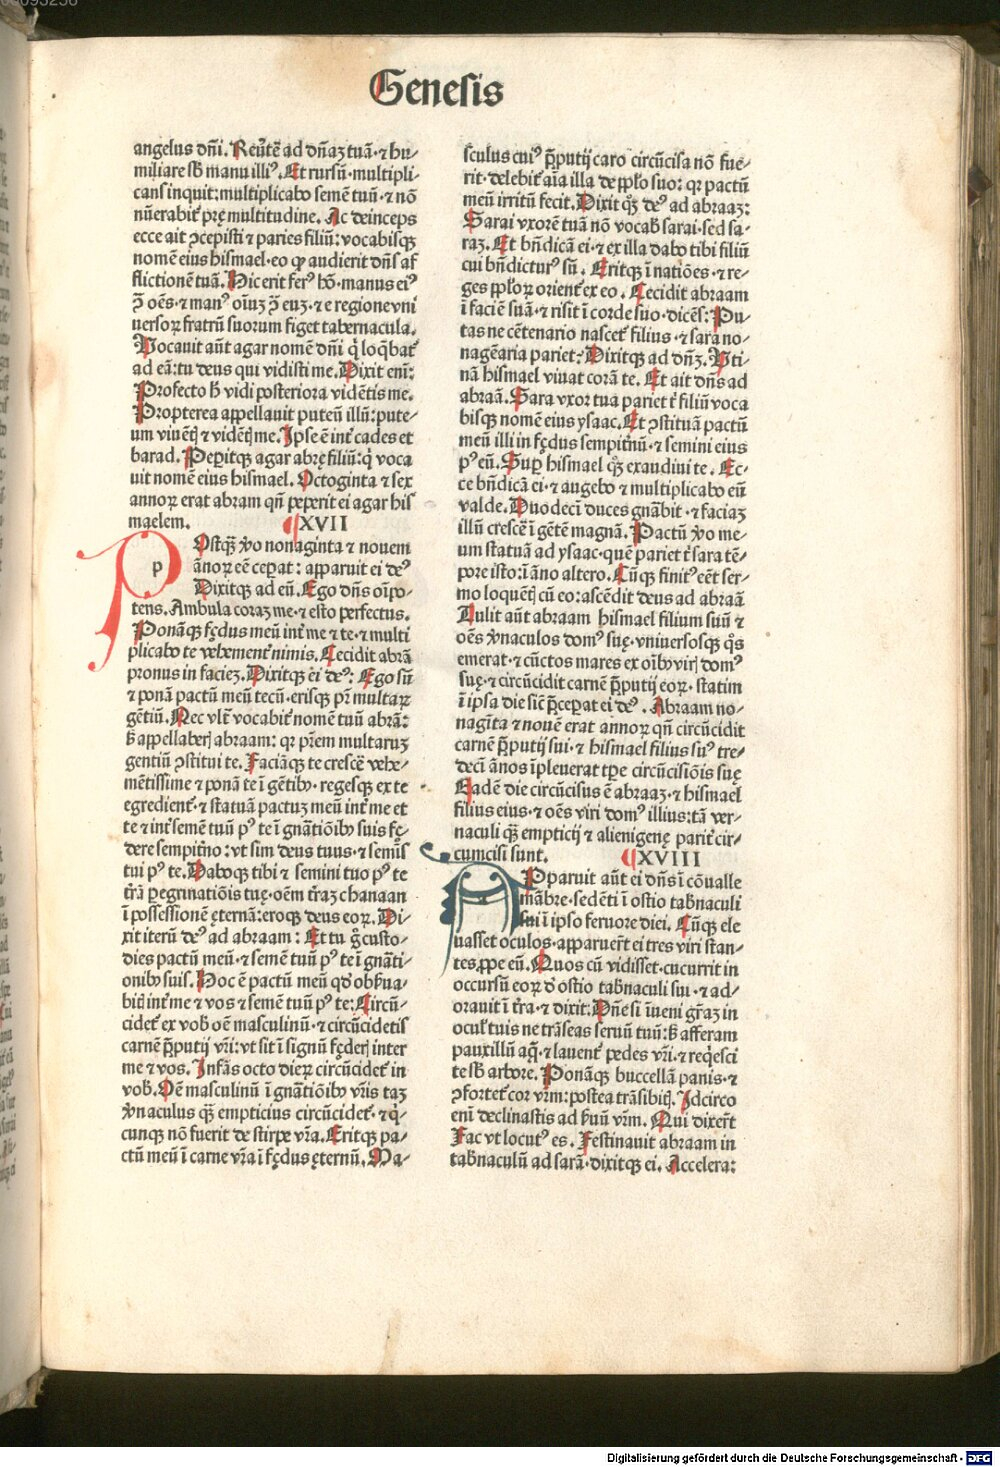 00095256
Genesis
angelus dñi. Reūtẽ ad dñaʒ tuã·⁊ hu⸗
miliare sƀ manu illiꝰ. Et rursũ·multipli⸗
cans inquit: multiplicabo semẽ tuũ·⁊ nõ
nũerabit᷑ prę multitudine. Ac deinceps
ecce ait ꝯcepisti ⁊ paries filiũ: vocabisqꝫ
nomẽ eius hismael·eo ꝙ audierit dñs af
flictionẽ tuã. Hic erit ferꝰ hõ·manus eiꝰ
ꝯ̃ oẽs·⁊ manꝰ oĩuʒ ꝯ̃ euʒ·⁊ e regione vni
uersoꝝ fratrũ suorum figet tabernacula.
Vocauit aũt agar nomẽ dñi q̇ loq̃bat᷑
ad eã: tu deus qui vidisti me. Dixit eni̅:
Profecto h̃ vidi posteriora vidẽtis me.
Propterea appellauit puteũ illũ: pute⸗
um viuẽtꝭ ⁊ vidẽtꝭ me. Ipse ẽ int᷑ cades et
barad. Peꝑitqꝫ agar abrę filiũ: q̇ voca
uit nomẽ eius hismael. Octoginta ⁊ sex
annoꝝ erat abram qñ peperit ei agar his
maelem. ¶XVII
p Ostqꝫ̃ v̊o nonaginta ⁊ nouem
ãnoꝝ eẽ ceꝑat: apparuit ei deꝰ
Dixitqꝫ ad eũ. Ego dñs oĩpo⸗
tens. Ambula coraʒ me·⁊ esto perfectus.
Ponãqꝫ fędus meũ int᷑ me ⁊ te·⁊ multi
plicabo te vehement᷑ nimis. Cecidit abrã
pronus in facieʒ. Dixitqꝫ ei deꝰ: Ego sũ
⁊ ponã pactũ meũ tecũ·erisqꝫ pr̃ multaꝝ
gẽtiũ. Nec vlt᷑ vocabit᷑ nomẽ tuũ abrã:
sꝫ appellaberꝭ abraam: qꝛ pr̃em multaruʒ
gentiũ ꝯstitui te. Faciãqꝫ te crescẽ vehe⸗
mẽtissime ⁊ ponã te ĩ gẽtibꝰ·regesqꝫ ex te
egredient᷑·⁊ statuã pactuʒ meũ int᷑ me et
te ⁊ int᷑ semẽ tuũ pꝰ te ĩ gnãtiõibꝰ suis fę⸗
dere sempit᷑no: vt sim deus tuus·⁊ semĩs
tui pꝰ te. Daboqꝫ tibi ⁊ semini tuo pꝰ te
tr̃ã ꝑegrinatiõis tuę·oẽm tr̃aʒ chanaan
ĩ possessionẽ ęternã: eroqꝫ deus eoꝝ. Di⸗
xit iterũ deꝰ ad abraam: Et tu g̊ custo⸗
dies pactũ meũ·⁊ semẽ tuũ pꝰ te ĩ gnãti⸗
onibꝰ suis. Hoc ẽ pactũ meũ qd̕ obẽrua⸗
bitꝭ int᷑ me ⁊ vos ⁊ semẽ tuũ pꝰ te: Circũ⸗
cidet᷑ ex vobꝭ oẽ masculinũ·⁊ circũcidetis
carnẽ p̃putij vr̃i: vt sit ĩ signũ fęderꝭ inter
me ⁊ vos. Infãs octo dieꝝ circũcidet᷑ in
vobꝭ. Oẽ masculinũ ĩ gnãtiõibꝰ vr̃is taʒ
v̊naculus qꝫ̃ empticius circũcidet᷑·⁊ q̇⸗
cunqꝫ nõ fuerit de stirpe vr̃a. Eritqꝫ pa⸗
ctũ meũ ĩ carne vr̃a ĩ fędus ęternũ. Ma⸗
sculus cuiꝰ p̃putij caro circũcisa nõ fue⸗
rit·delebit᷑ aĩa illa de pplo suo: qꝛ pactũ
meũ irritũ fecit. Dixit qꝫ̃ deꝰ ad abraaʒ:
Sarai vxorẽ tuã nõ vocabꝭ sarai·sed sa⸗
raʒ. Et bñdicã ei·⁊ ex illa dabo tibi filiũ
cui bñdicturꝰ sũ. Eritqꝫ ĩ natiões·⁊ re⸗
ges pploꝝ orient᷑ ex eo. Cecidit abraam
ĩ faciẽ suã·⁊ risit ĩ corde suo·dicẽs: Pu⸗
tas ne cẽtenario nascet᷑ filius·⁊ sara no⸗
nagẽaria pariet? Dixitqꝫ ad dñʒ. Vti⸗
nã hismael viuat corã te. Et ait dñs ad
abraã. Sara vxor tua pariet t᷑ filiũ voca
bisqꝫ nomẽ eius ysaac. Et ꝯstituã pactũ
meũ illi in fędus sempit᷑nũ·⁊ semini eius
pꝰ eũ. Suꝑ hismael qꝫ̊ exaudiui te. Ec⸗
ce bñdicã ei·⁊ augebo ⁊ multiplicabo eũ
valde. Duodecĩ duces gnãbit·⁊ faciaʒ
illũ crescẽ ĩ gẽtẽ magnã. Pactũ v̊o me⸗
um statuã ad ysaac·quẽ pariet t᷑ sara tẽ⸗
pore isto: ĩ ãno altero. Cũqꝫ finitꝰ eẽt ser⸗
mo loquẽtꝭ cũ eo: ascẽdit deus ad abraã
Tulit aũt abraam hismael filium suũ ⁊
oẽs v̊naculos domꝰ suę·vniuersosqꝫ q̊s
emerat·⁊ cũctos mares ex oĩbꝰ virꝭ domꝰ
suę·⁊ circũcidit carnẽ p̃putij eoꝝ·statim
ĩ ipsa die sic̃ p̃ceꝑat ei deꝰ. Abraam no⸗
nagĩta ⁊ nouẽ erat annoꝝ qñ circũcidit
carnẽ p̃putij sui·⁊ hismael filius suꝰ tre⸗
decĩ ãnos ĩpleuerat tꝑe circũcisiõis suę
Eadẽ die circũcisus ẽ abraaʒ·⁊ hismael
filius eius·⁊ oẽs viri domꝰ illius: tã ver⸗
naculi qꝫ̃ empticij ⁊ alienigenę parit᷑ cir⸗
cumcisi sunt. ¶XVIII
A Pparuit aũt ei dñs ĩ cõualle
mãbre·sedẽti ĩ ostio tab̃naculi
sui ĩ ipso feruore diei. Cũqꝫ ele
uasset oculos·apparuer̃t ei tres viri stan⸗
tes ꝓpe eũ. Quos cũ vidisset·cucurrit in
occursũ eoꝝ d̕ ostio tab̃naculi sui·⁊ ad⸗
orauit ĩ t᷑ra·⁊ dixit: Dñe si ĩueni gr̃aʒ in
oculꝭ tuis ne trãseas seruũ tuũ: sꝫ afferam
pauxillũ aq̃·⁊ lauent᷑ pedes vr̃i·⁊ req̇esci
te sƀ arbore. Ponãqꝫ buccellã panis·⁊
ꝯfortet᷑ cor vr̃m: postea trãsibitꝭ. Idcirco
eni̅ declinastis ad ẽuũ vr̃m. Qui dixer̃t
Fac vt locutꝰ es. Festinauit abraam in
tab̃naculũ ad sarã·dixitqꝫ ei. Accelera:
Digitalisierung gefördert durch die Deutsche Forschungsgemeinschaft - DFG